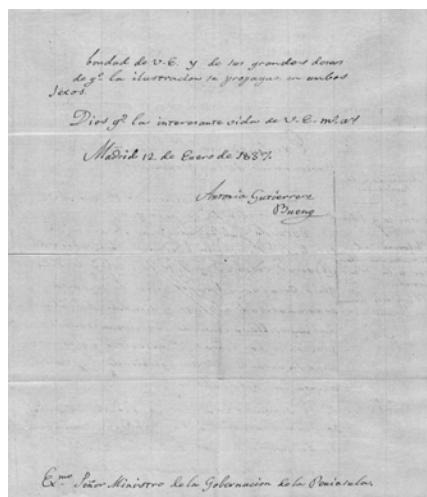 bondad de V.E. y de sus grandes deseos
de qe. la ilustracion se propague en ambos
sexos.
Dios ge. la interesante vida de V.E. ms. as.
Madrid 12 de Enero de 1837.
Antonia Gutierrez
Bueno
Exmo. Señor Ministro de la Gobernacion de la Peninsula.